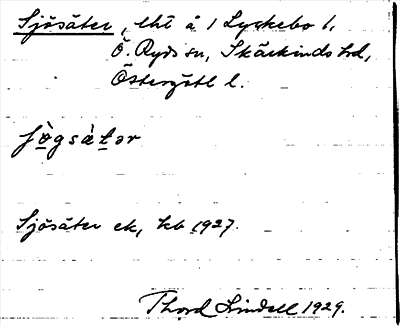 Sjösäter, lht å 1 Lyckebo 1,
Ö. Ryds sn, Skärkinds hd,
Östergötl l.
Sjösäter ek, kb 1927.
Thord Lindell 1929.